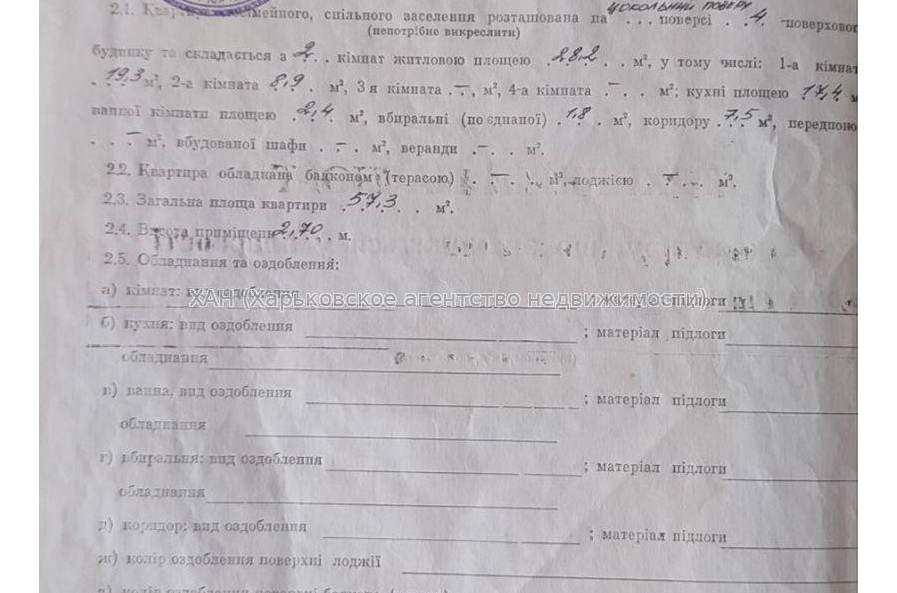 2.1. Квартира сімейного, спільного заселення розташована на цокольний поверх . . . поверсі . . 4. -поверховог
(непотрібне викреслити)
будинку та складається з 2 . . кімнат житловою площею . 28,2 . . м², у тому числі: 1-а кімнат
. 19,3 м², 2-а кімната 8,9 . м², 3 я кімната . – , м², 4-а кімната . – . . м²; кухні площею 17,4 м
ванної кімнати площею . 2,4 . м², вбиральні (поєднаної) . 1,8 . м², коридору . 7,5 м², передпоко
. . . – м², вбудованої шафи . – . м², веранди . – . . м².
2.2. Квартира обладнана балконом (терасою) . – . . м², лоджією . – . . м².
2.3. Загальна площа квартири . 57,3 . . м².
2.4. Висота приміщень 2,70 . . м.
2.5. Обладнання та оздоблення:
а) кімнат: вид оздоблення ; матеріал підлоги
ХАН (Харьковское агентство недвижимости)
б) кухня: вид оздоблення ; матеріал підлоги
обладнання
в) ванна, вид оздоблення ; матеріал підлоги
обладнання
г) вбиральня: вид оздоблення ; матеріал підлоги
обладнання
д) коридор: вид оздоблення ; матеріал підлоги
ж) колір оздоблення поверхні лоджії
колір оздоблення поверхні